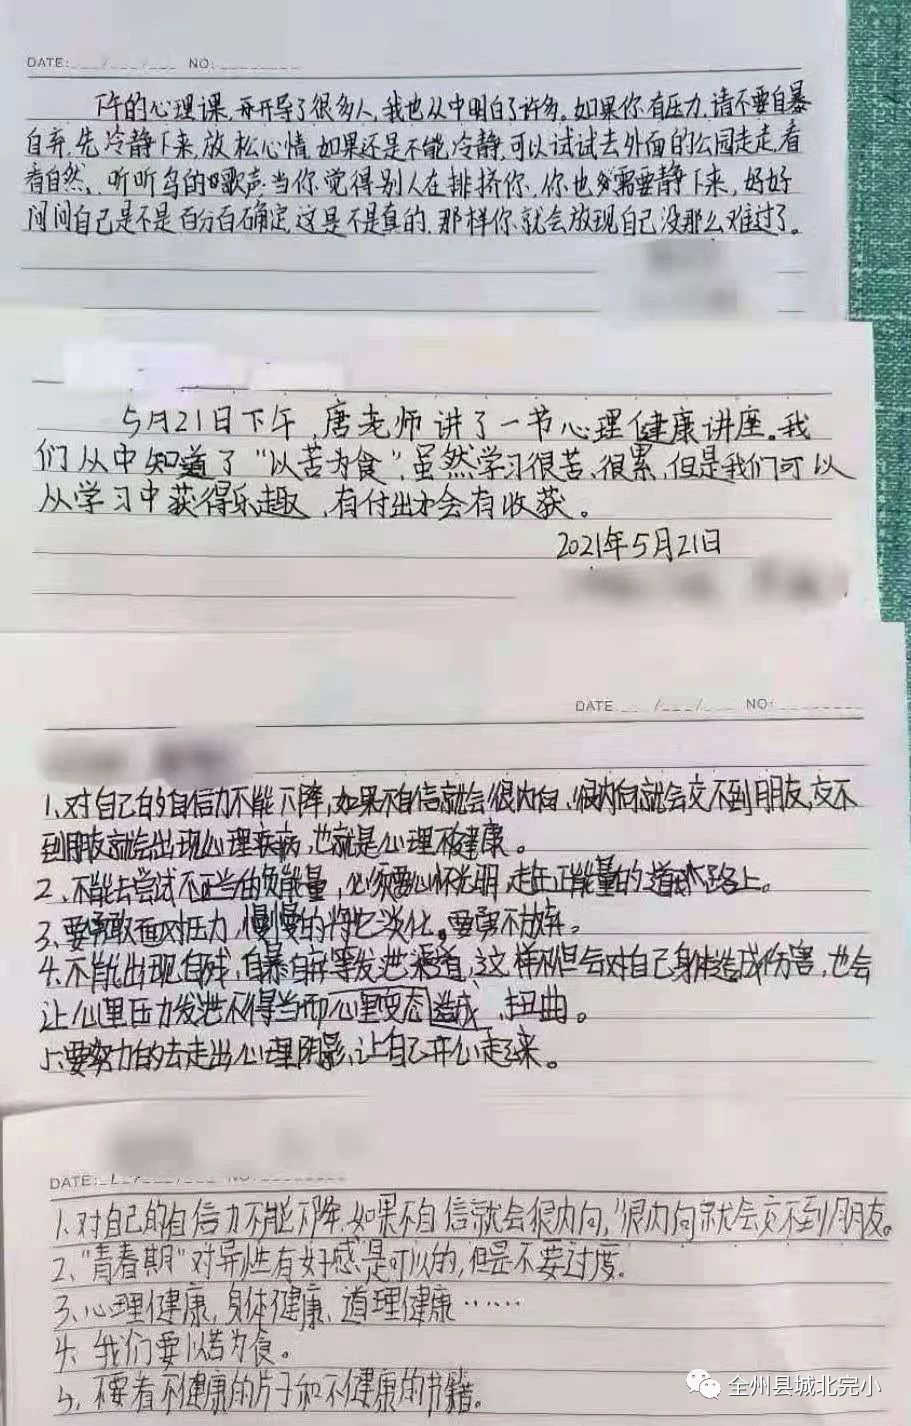 DATE: / / NO:
下午的心理课,再开导了很多人,我也从中明白了许多。如果你有压力,请不要自暴
自弃,先冷静下来,放松心情,如果还是不能冷静,可以试试去外面的公园走走,看
看自然、听听鸟的歌声.当你觉得别人在排挤你,你也需要静下来,好好
问问自己是不是百分百确定,这是不是真的,那样你就会放现自己没那么难过了。
5月21日下午,唐老师讲了一节心理健康讲座。我
们从中知道了“以苦为食”,虽然学习很苦、很累,但是我们可以
从学习中获得乐趣,有付出才会有收获。
2021年5月21日
DATE / / NO:
1、对自己的自信力不能下降,如果不自信就会很内向,很内向就会交不到朋友,交不
到朋友就会出现心理疾病,也就是心理不健康。
2、不能去尝试不正当的负能量,必须要心怀光明,走在正能量的道路上。
3、要勇敢面对压力,慢慢的将它淡化。要努不放弃。
4、不能出现自残,自暴自弃等发泄渠道,这样不但会对自己身体造成伤害,也会
让心里压力发泄不得当而心里变态造成、扭曲。
5、要努力的去走出心理阴影,让自己开心起来。
DATE: / / NO:
1、对自己的自信力不能下降,如果不自信就会很内向,很内向就会交不到朋友。
2、“青春期”对异性有好感是可以的,但是不要过度。
3、心理健康,身体健康、道理健康……
4、我们要以苦为食。
5、不要看不健康的片子和不健康的书籍。
全州县城北完小